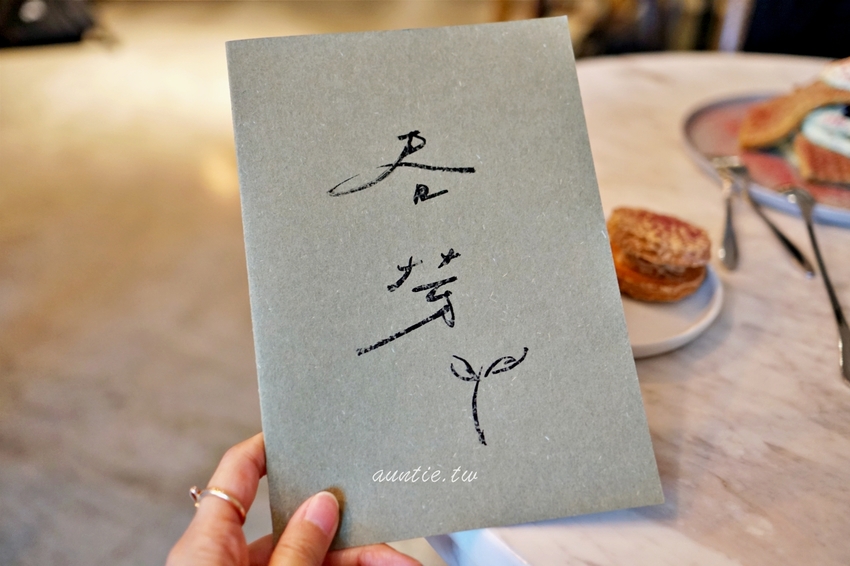 春
芽
auntie.tw